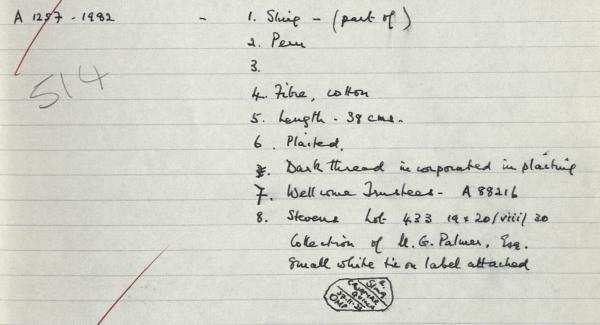 A 1257-1982 - 1. Sling - (part of)
2. Peru
3.
514
4. Fibre, cotton
5. Length - 38 cms.
6. Plaited.
Dark thread incorporated in plaiting
7. Wellcome Trustees - A 88216
8. Stevens Lot 433 19 & 20/viii/30
Collection of G. Palmer, Esq.
Small white tie on label attached
Sling